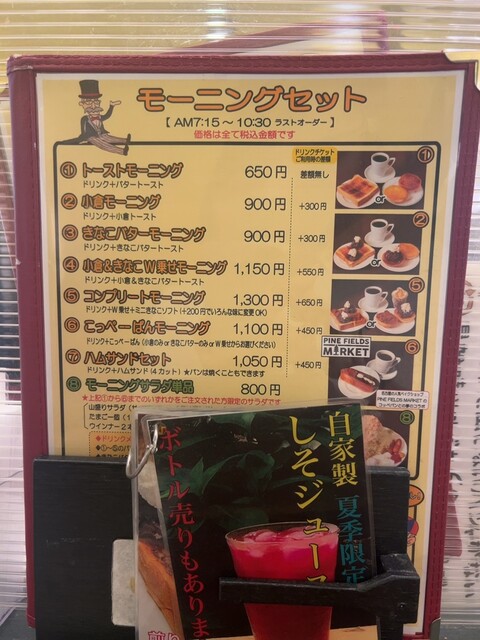 モーニングセット
【 AM7:15 ～ 10:30 ラストオーダー 】
価格は全て税込金額です
ドリンクチケット
ご利用時の差額
① トーストモーニング 650円 差額無し
ドリンク+バタートースト
② 小倉モーニング 900円 +300円
ドリンク+小倉トースト
③ きなこバターモーニング 900円 +300円
ドリンク+きなこバタートースト
④ 小倉&きなこW乗せモーニング 1,150円 +550円
ドリンク+小倉&きなこバタートースト
⑤ コンプリートモーニング 1,300円 +650円
ドリンク+W乗せ+ミニきなこソフト(+200円でいろんな味に変更OK)
⑥ こっぺーぱんモーニング 1,100円 +450円
ドリンク+こっぺーぱん(小倉のみ or きなこバターのみ or W乗せからお選びください)
⑦ ハムサンドセット 1,050円 +450円
ドリンク+ハムサンド(4カット) ★パンは焼くこともできます
⑧ モーニングサラダ単品 800円
★上記①から⑥までのいずれかをご注文された方限定のサラダです
山盛りサラダ
たまご一個
ウインナー2本
①
or
②
or
⑤
or
PINE FIELDS
MARKET
⑥
PINE FIELDS MARKETの
⑧
自家製
しそジュース
夏季限定
ボトル売りもありま